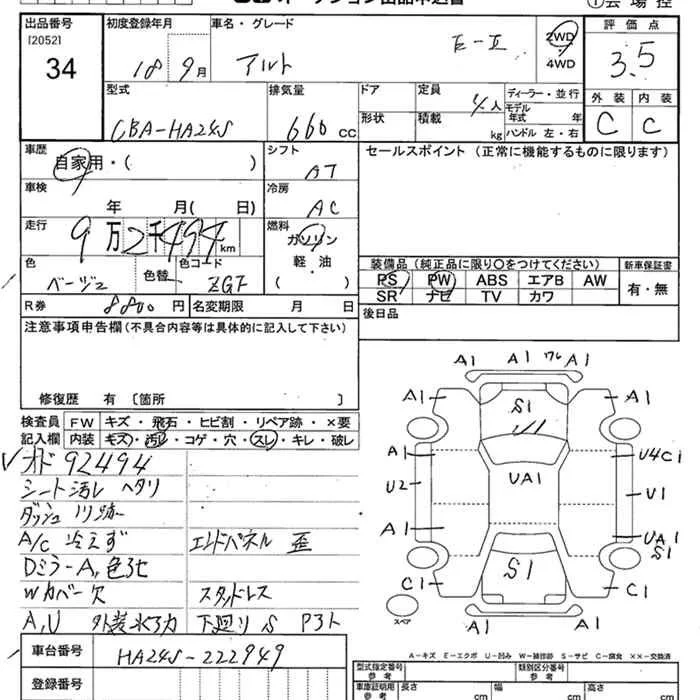 出品番号
[2052]
34
初度登録年月
18 9月
車名・グレード
アルト E-II
2WD
4WD
評価点
3.5
外装 内装
C C
型式
CBA-HA24S
排気量
660 CC
ドア
形状
定員
4人
積載
kg
ディーラー・並行
モデル
年式 年
ハンドル 左・右
車歴
自家用・( )
シフト
AT
セールスポイント (正常に機能するものに限ります)
車検
年 月( 日)
冷房
AC
走行
9万2千494km
燃料
ガソリン
軽・油
( )
色
ベージュ
色替
色コード
ZGF
装備品 (純正品に限り○をつけてください)
PS PW ABS エアB AW
SR ナビ TV カワ
新車保証書
有・無
R券 8800円
名変期限 月 日
後日品
注意事項申告欄(不具合内容等は具体的に記入して下さい)
修復歴 有 〔箇所 〕
検査員
記入欄
FW キズ・飛石・ヒビ割・リペア跡・×要
内装 キズ・汚レ・コゲ・穴・スレ・キレ・破レ
オド 92494
シート汚レ ヘタリ
ダッシュ
A/C 冷えず エンドパネル 歪
Dミラー A,色
Wカバー欠 スタッドレス
A,U 外装 下廻り S
車台番号
HA24S-222949
登録番号
A1 A1 A1
A1 S1 A1
A1 U4C1
U2 UA1 U1
A1 UA1
S1
C1 S1 C1
スペア
A1 A1
A-キズ E-エクボ U-凹み W-補修跡 S-サビ C-腐食 ××-交換済
型式指定番号
類別区分番号
車庫証明用
参考
長さ cm
幅 cm
高さ cm